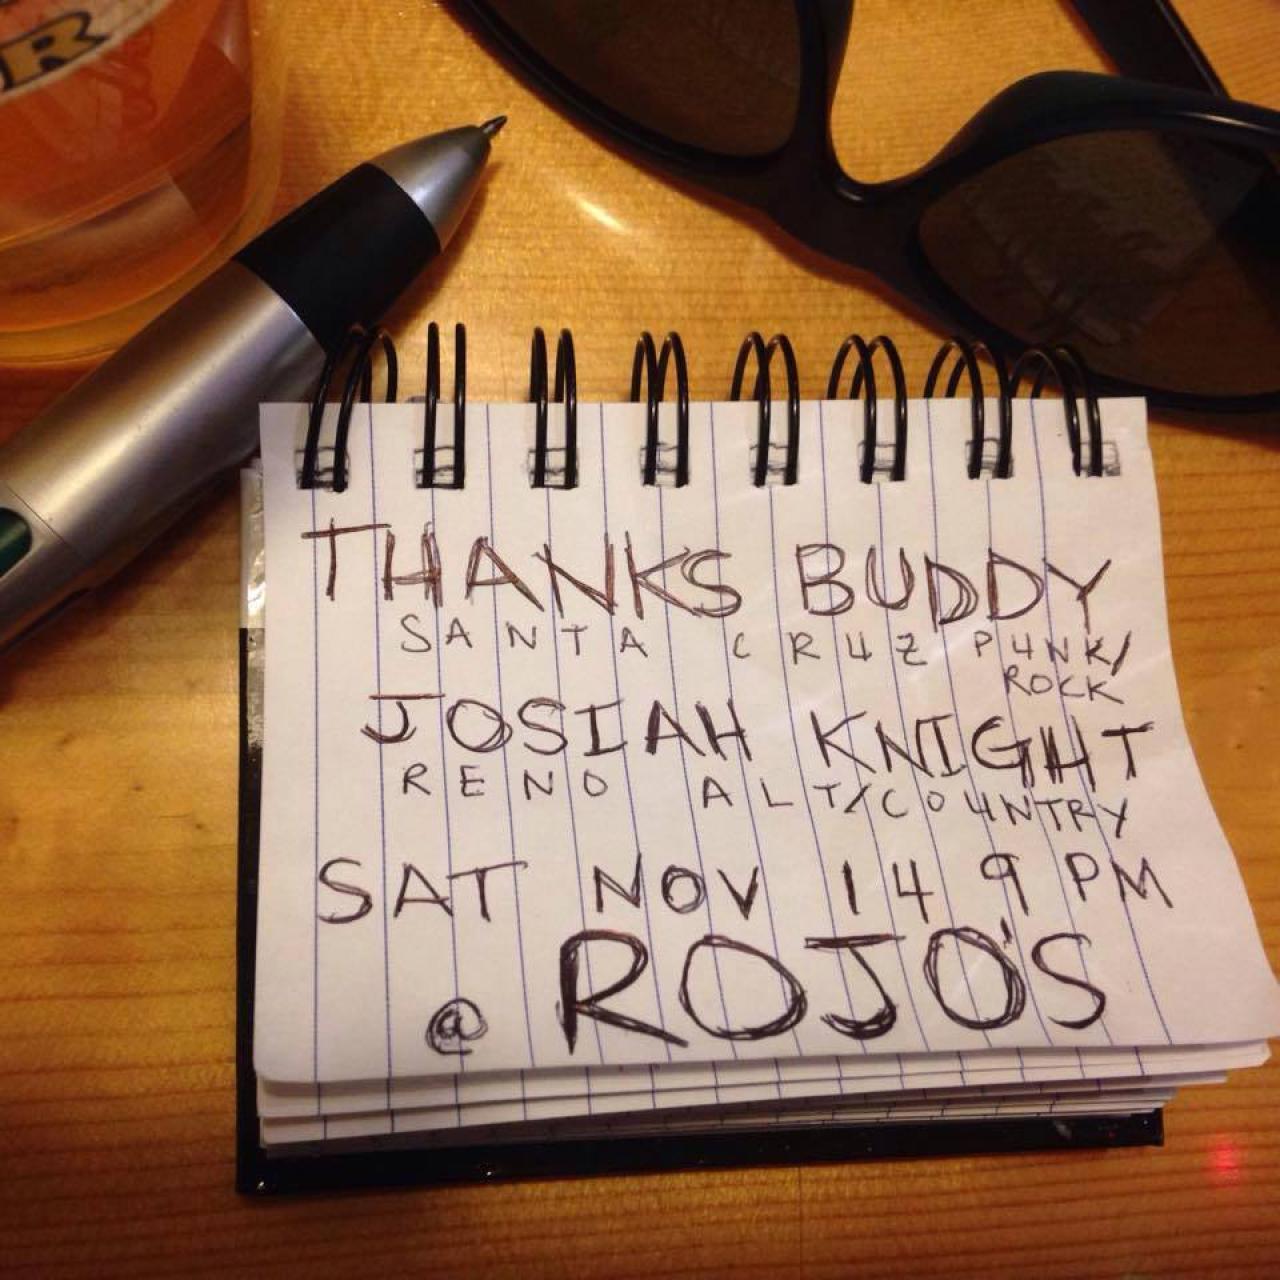 R
THANKS BUDDY
SANTA CRUZ PUNK/
ROCK
JOSIAH KNIGHT
RENO ALT/COUNTRY
SAT NOV 14 9 PM
@ ROJO'S